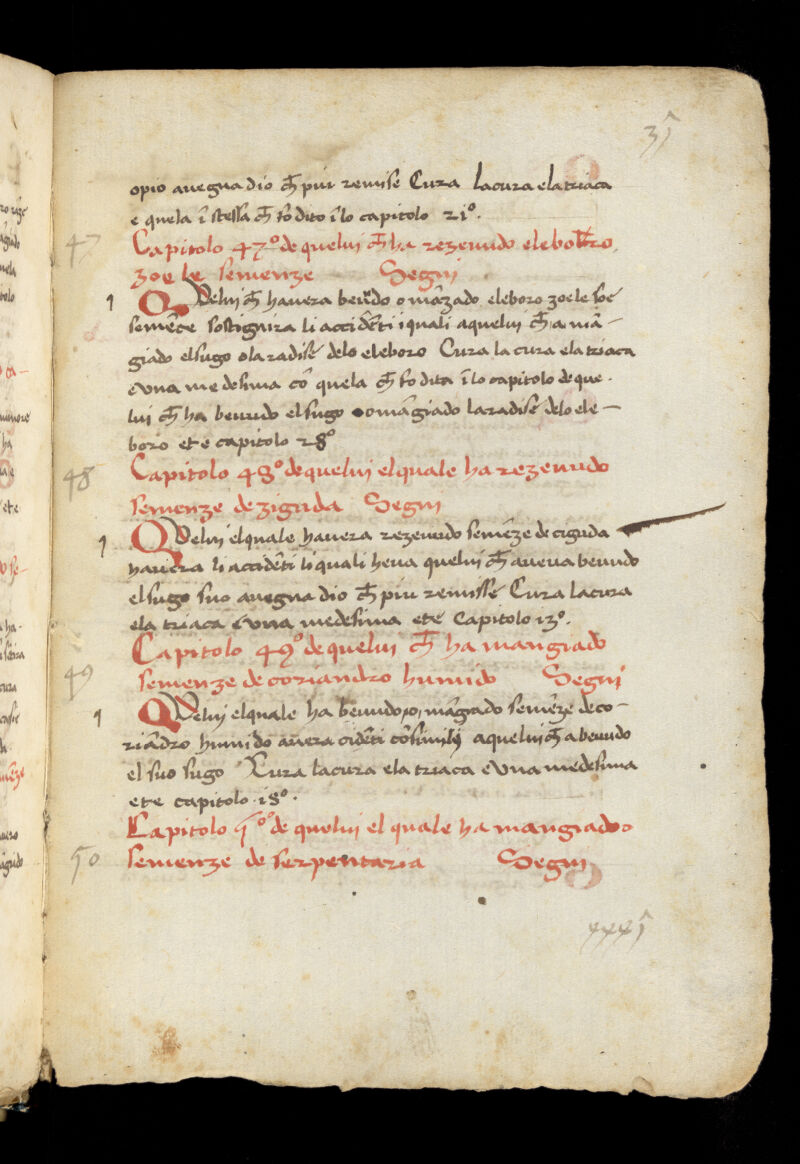 31
opio avegna dio ch̄ piu remise Cura la cura e la triaca
e quela ī stessa ch̄ fo dito ī lo capitolo 21°.
47 Capitolo 47° de quelui ch̄ ha rezevudo elebors̄o
zoe le semenze Segui
Quelui ch̄ havera bevudo o māzado eleboro zoe le soe
semēce sostignira li accidēti i quali a quelui ch̄ a mā-
giado el sugo o la radise delo eleboro Cura la cura e la triaca
e una medesima cō quela ch̄ fo dita ī lo capitolo de que-
lui ch̄ ha bevudo el sugo o māgiado la radise delo ele-
boro et e capitolo 28°
48 Capitolo 48° de quelui el quale ha rezevudo
semenze de ziguda Segui
Quelui el quale havera rezevudo semēze de ciguda
havera li accidēti li quali heva quelui ch̄ aveva bevudo
el sugo suo avegna dio ch̄ piu remisse Cura la cura
e la triaca e una medesima et e Capitolo 13°.
Capitolo 49° de quelui ch̄ ha mangiado
49 semenze de coriandro humido Segui
Quelui el quale ha bevudo, o, māgiado semēze de co-
riādro humido avera cidēti cōsimili a quelui ch̄ a bevudo
el suo sugo Cura la cura e la triaca e una medesima
et e capitolo .18°.
Capitolo 50° de quelui el quale ha mangiado
50 semenze de serpentaria Segui
xxxj